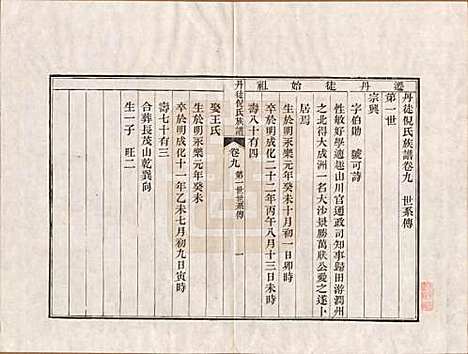 遷丹徒始祖
丹徒倪氏族譜卷九 世系傳
第一世
宗興
字伯勛 號可詩
性敏好學適趣山川官通政司知事歸田游潤州
之北得大成洲一名大沙景勝萬狀公愛之遂卜
居焉
生於明永樂元年癸未十月初一日卯時
卒於明成化二十二年丙午八月十三日未時
壽八十有四
丹徒倪氏族譜
卷九 第一世世系傳
一
娶王氏
生於明永樂元年癸未
卒於明成化十一年乙未七月初九日寅時
壽七十有三
合葬長茂山乾巽向
生一子 旺二